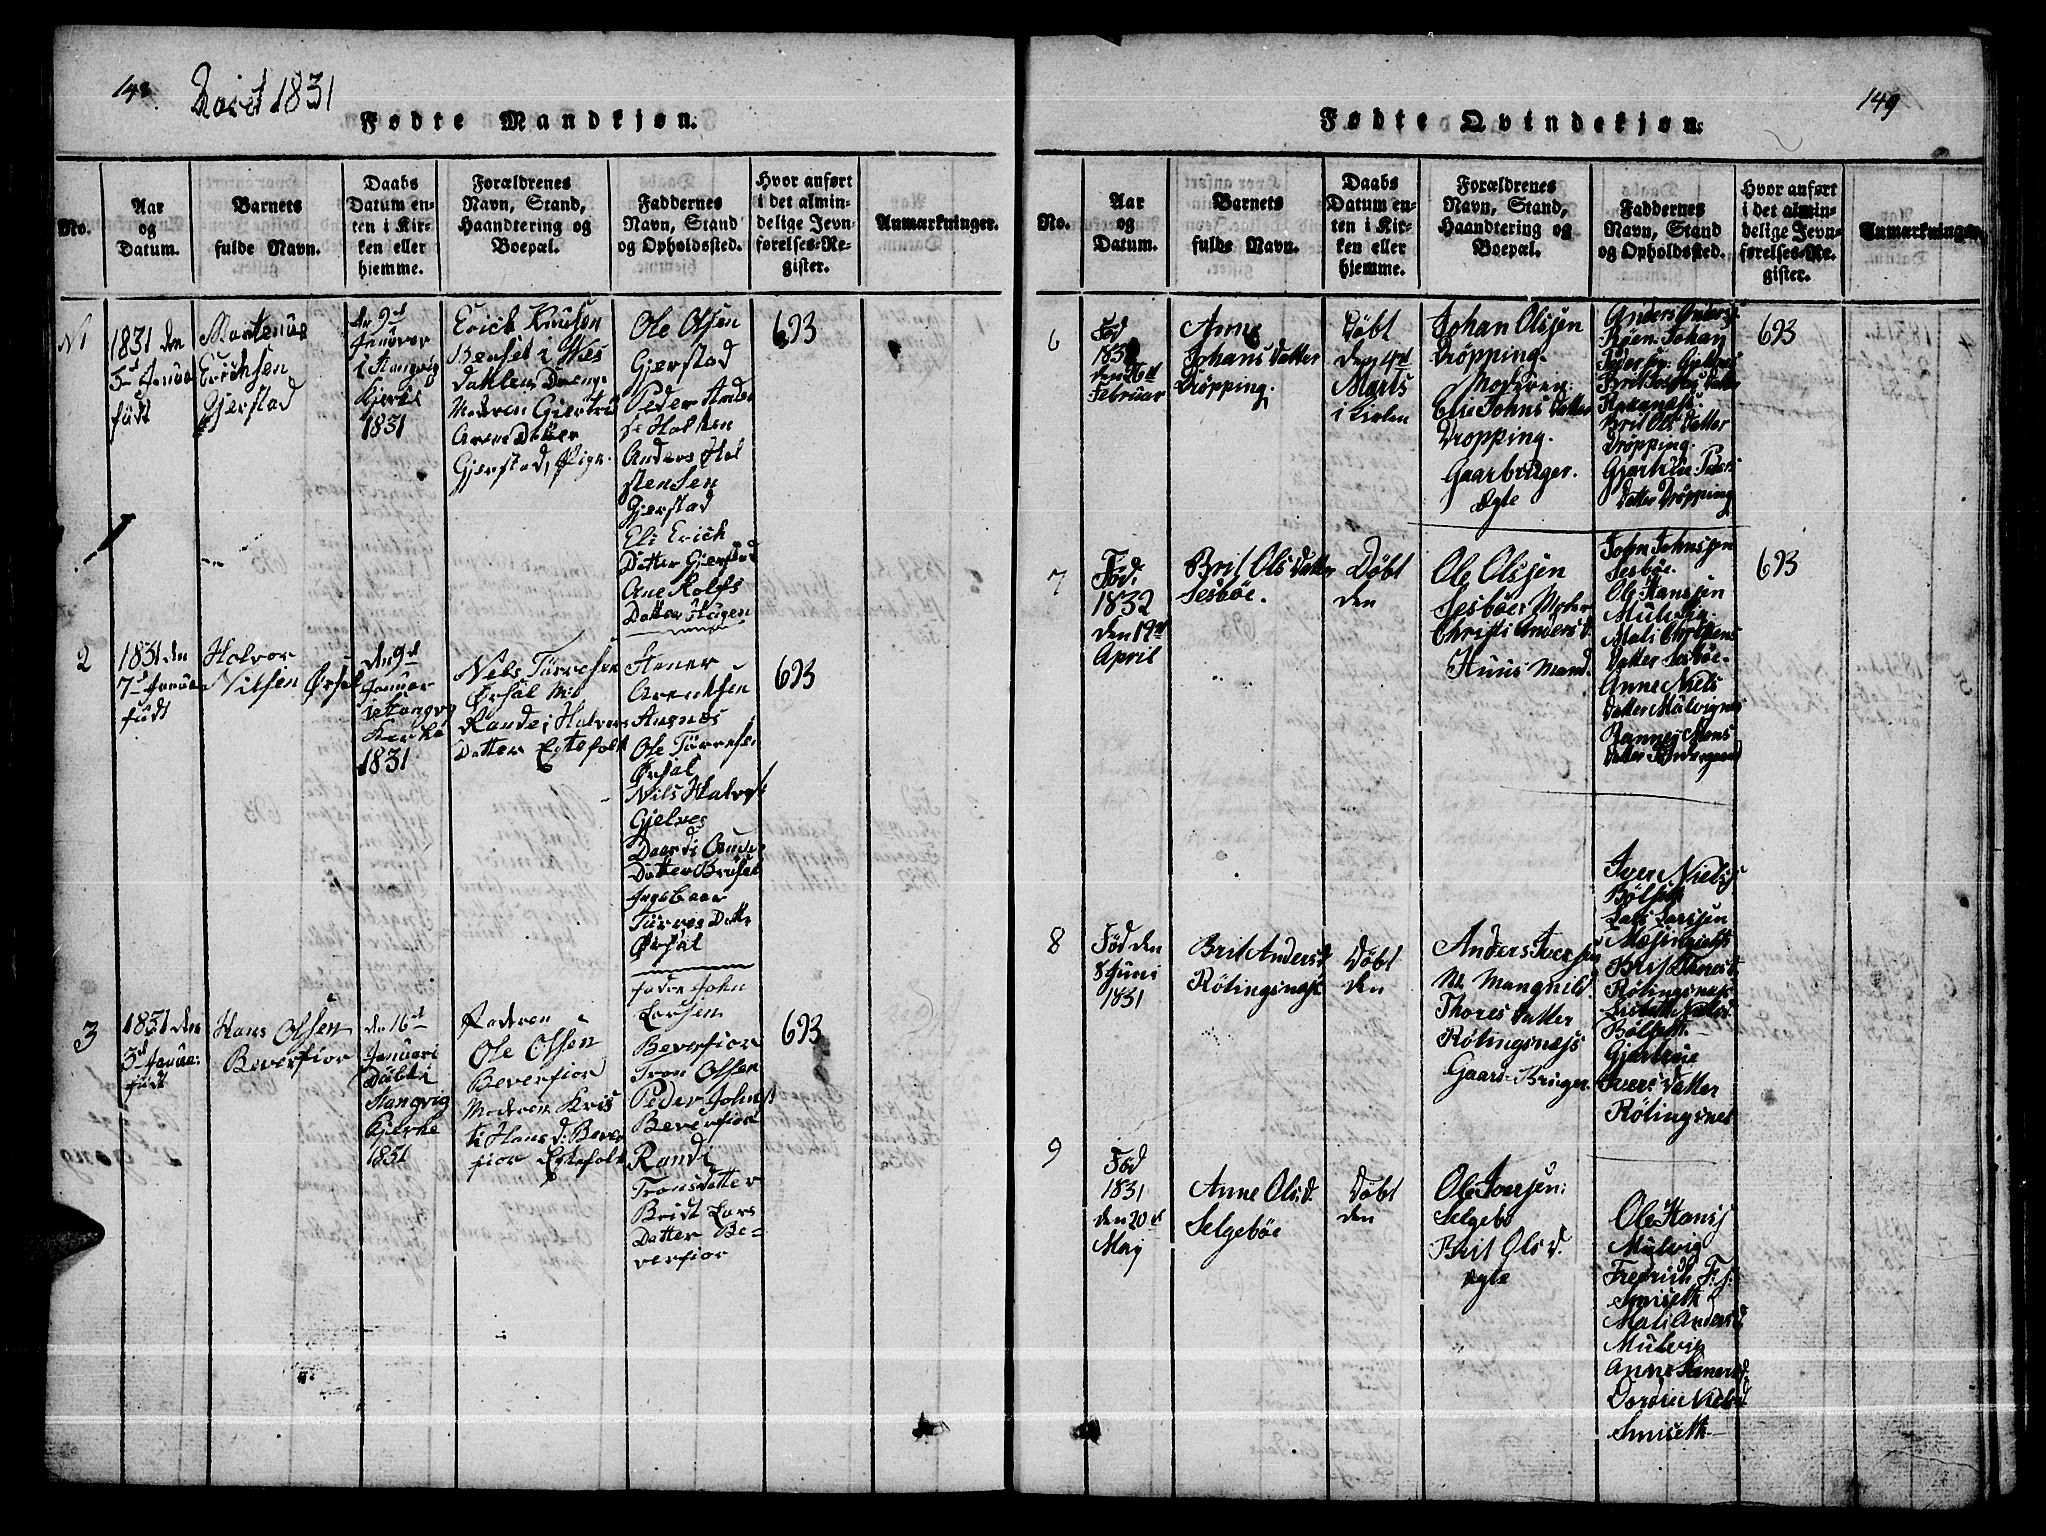 148.
1831
Fødte Mandkjøn.
No.
Aar
og
Datum.
Barnets
fulde Navn.
Daabs
Datum en-
ten i Kir-
ken eller
hjemme.
Forældrenes
Navn, Stand,
Haandtering og
Boepæl.
Faddernes
Navn, Stand
og Opholdssted.
Hvor anført
i det almin-
delige Jevn-
førelses-Re-
gister.
Anmærkninger.
N 1
1831 den
5d Januar
födt
Martenus
Erichsen
Gjerstad
den 9d
Januar
i Stangvig
Kjerke
1831
Erick Knudsen
Dahlen Drenge
Modren Gjertru
Arens Datter
Gjerstad, Pige.
Ole Olsen
Gjerstad
Peder Ander
Anders Hol
stensen
Gjerstad
Eli Erick
Datter Gjerstad
Ane Rolfs
Datter Hagen
693
2
1831 den
7d Januar
födt
Halvor
Nilsen Ørsal
den 9d
Januar
i Stangvig
Kerke
1831
Nils Törresen
Ørsal M:
Randei Halvors
Datter Egtefolk
Stener
Arentsen
Angnes
Ole Törresen
Ørsal
Nils Halvors
Gjelnes
Daardi
Datter Bruset
Ingebaar
Törres Datter
Ørsal
693
3
1831 den
3d Januar
födt
Hans Olsen
Beverfior
den 16d
Januari
Döbt i
Stangvig
Kjerke
1831
Faderen
Ole Olsen
Beverfior
Moderen Kris
ti Hans d: Bever
fior Egtefolk
fadere John
Larsen
Beverfior
Tron Olsen
Peder Johns
Beverfior
Randi
Tronsdatter
Bridt Lars
Datter Be-
verfior
693
149
Fødte Qvindekjøn.
No.
Aar
og
Datum.
Barnets
fulde Navn.
Daabs
Datum en-
ten i Kir-
ken eller
hjemme.
Forældrenes
Navn, Stand,
Haandtering og
Boepæl.
Faddernes
Navn, Stand
og Opholdssted.
Hvor anført
i det almin-
delige Jevn-
førelses-Re-
gister.
Anmærkninger.
6
Föd
den 26d
Februar
Anne
Johans Datter
Dröpping.
Döbt
den 4d
Marts
i Kirken
Johan Olssen
Dröpping.
Moderen:
Elie Johns Datter
Dropping.
Gaarbruger.
Egte
Anders Anders
Röen. Johan
Brit Ols Datter
Dröpping.
Gjertrue Peders
Datter Dröpping
693
7
Föd.
1832
den 19d
April
Brit Ols Datter
Sesböe.
Döbt
den
Ole Olssen
Sesböe: Moder
Christi Anders d.
Huusmand.
John Johnssen
Sesböe.
Ole Hanssen
Mulvig.
Mali Christens
Datter Sesböe.
Anne Niels
Datter Mulvignes
Ranney Mons
693
8
Föd den
8 Juni
1831
Brit Anders d.
Rölingsnæs
Döbt
den
Anders Iversen
M. Mangnild
Thores Datter
Rölingsnæss
Gaard-Bruger.
Iver Niels
Bölset
Lars Larssen
Brit Thores d.
Rölingsnæs
Bölset.
Gjertrue
Ivers Datter
Rölingsnes
9
Föd
1831
den 20d
May
Anne Ols d.
Selgeböe
Döbt
den
Ole Iversen:
Selgebö
Brit Ols d.
Egte
Ole Hans
Mulvig
Fredrich F:
Smiseth
Mali Anders d
Mulvig
Anne Steners d.
Dorøe Niels d
Smiseth